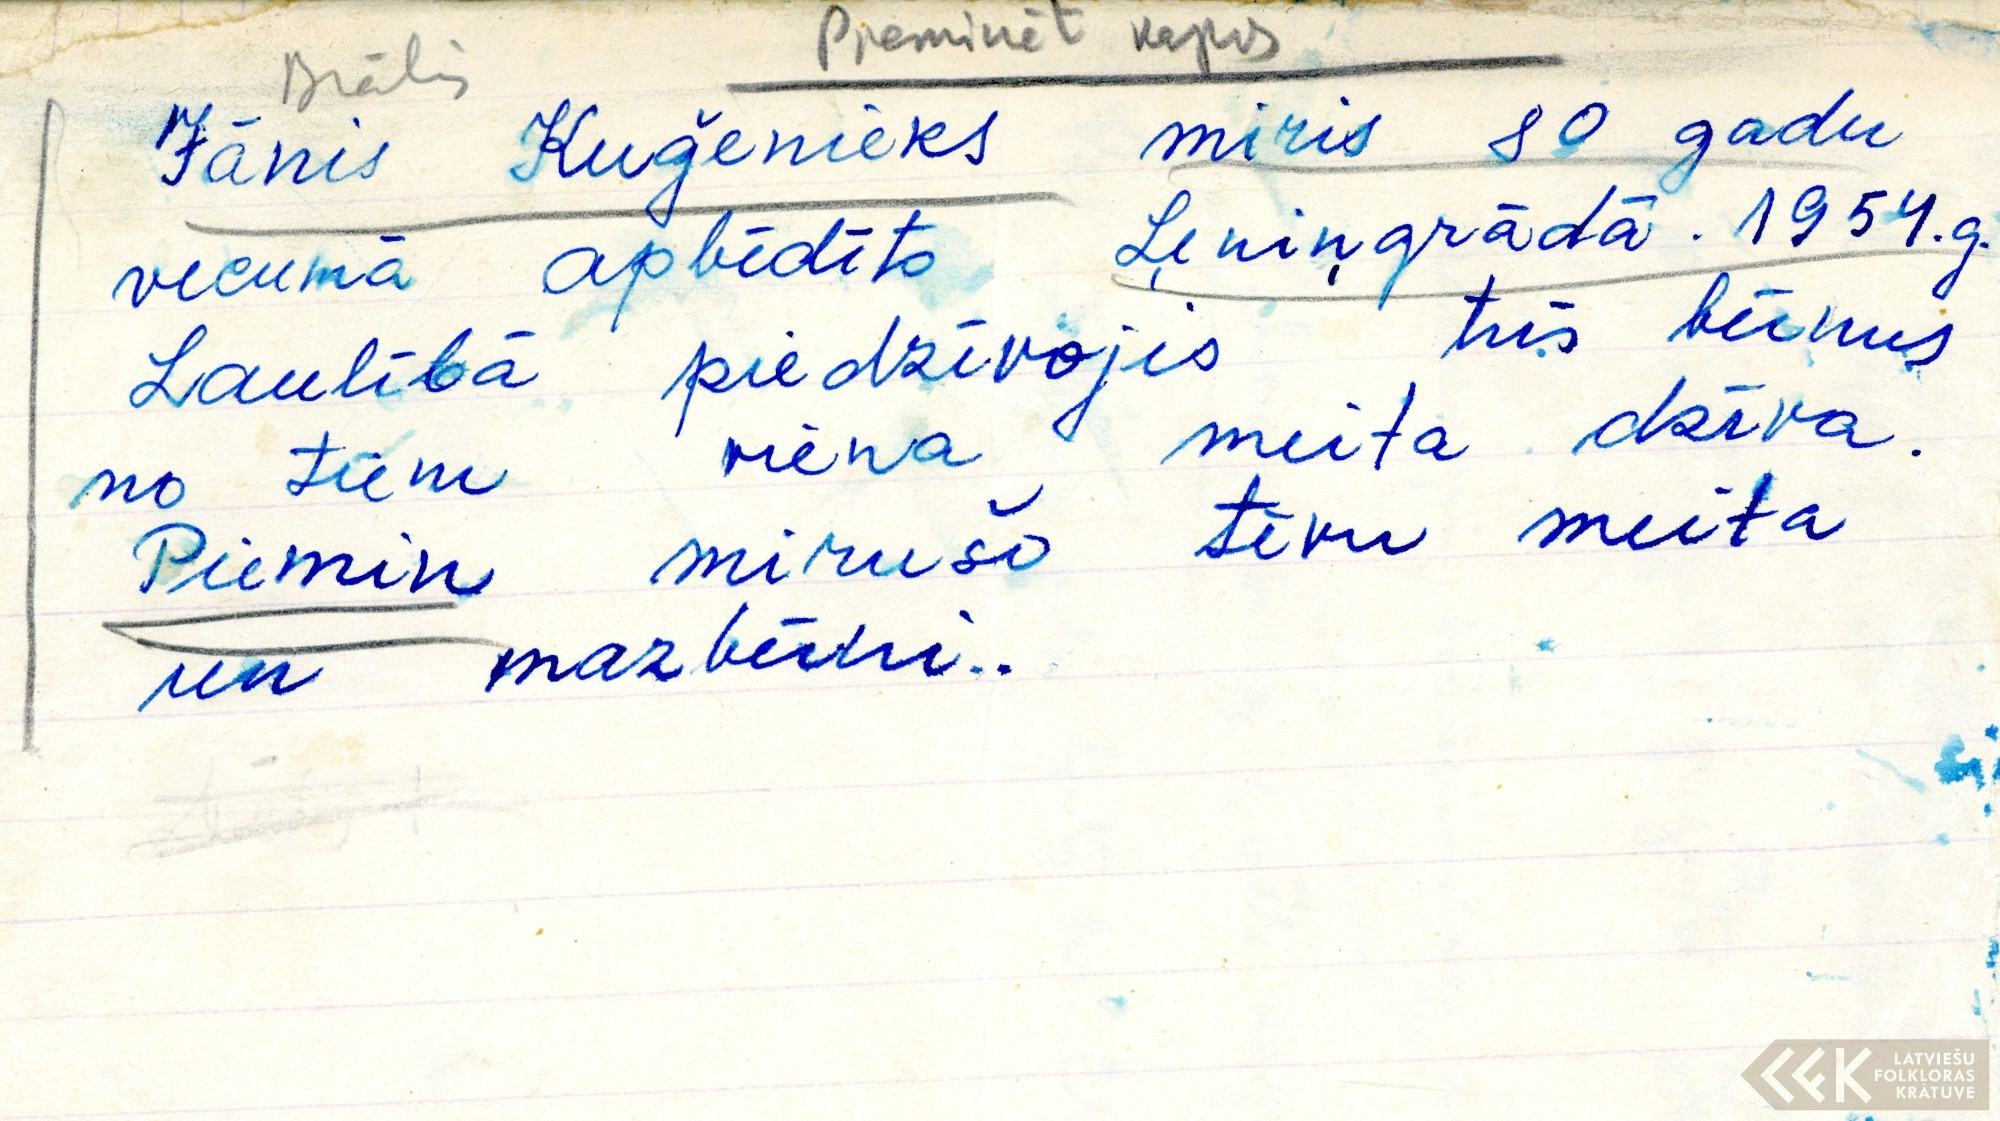 Pieminēt kapos
Brālis
Jānis Kuğenieks miris 80 gadu
vecumā apbēdīts Ļeniņgrādā. 1954.g.
Laulībā piedzīvojis trīs bērnus
no tiem viena meita dzīva.
Piemin mirušo tēvu meita
un mazbērni..
LATVIEŠU
FOLKLORAS
KRĀTUVE